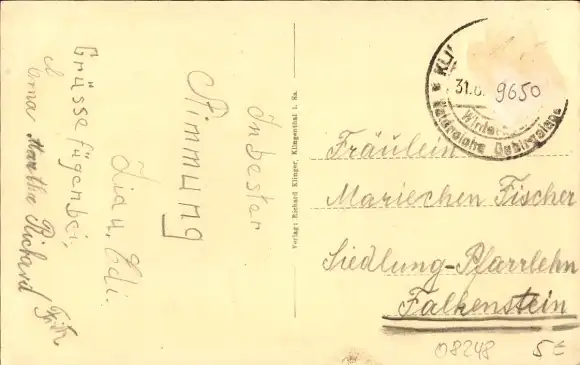 In bester
Stimmung
Lia u. Edi.
Grüsse fügen bei,
Martha Richard Fritz
Verlag: Richard Klinger, Klingenthal i. Sa.
KLI
31.
9650
Fräulein
Mariechen Fischer
Siedlung-Pfarrlehn
Falkenstein
08248 5€